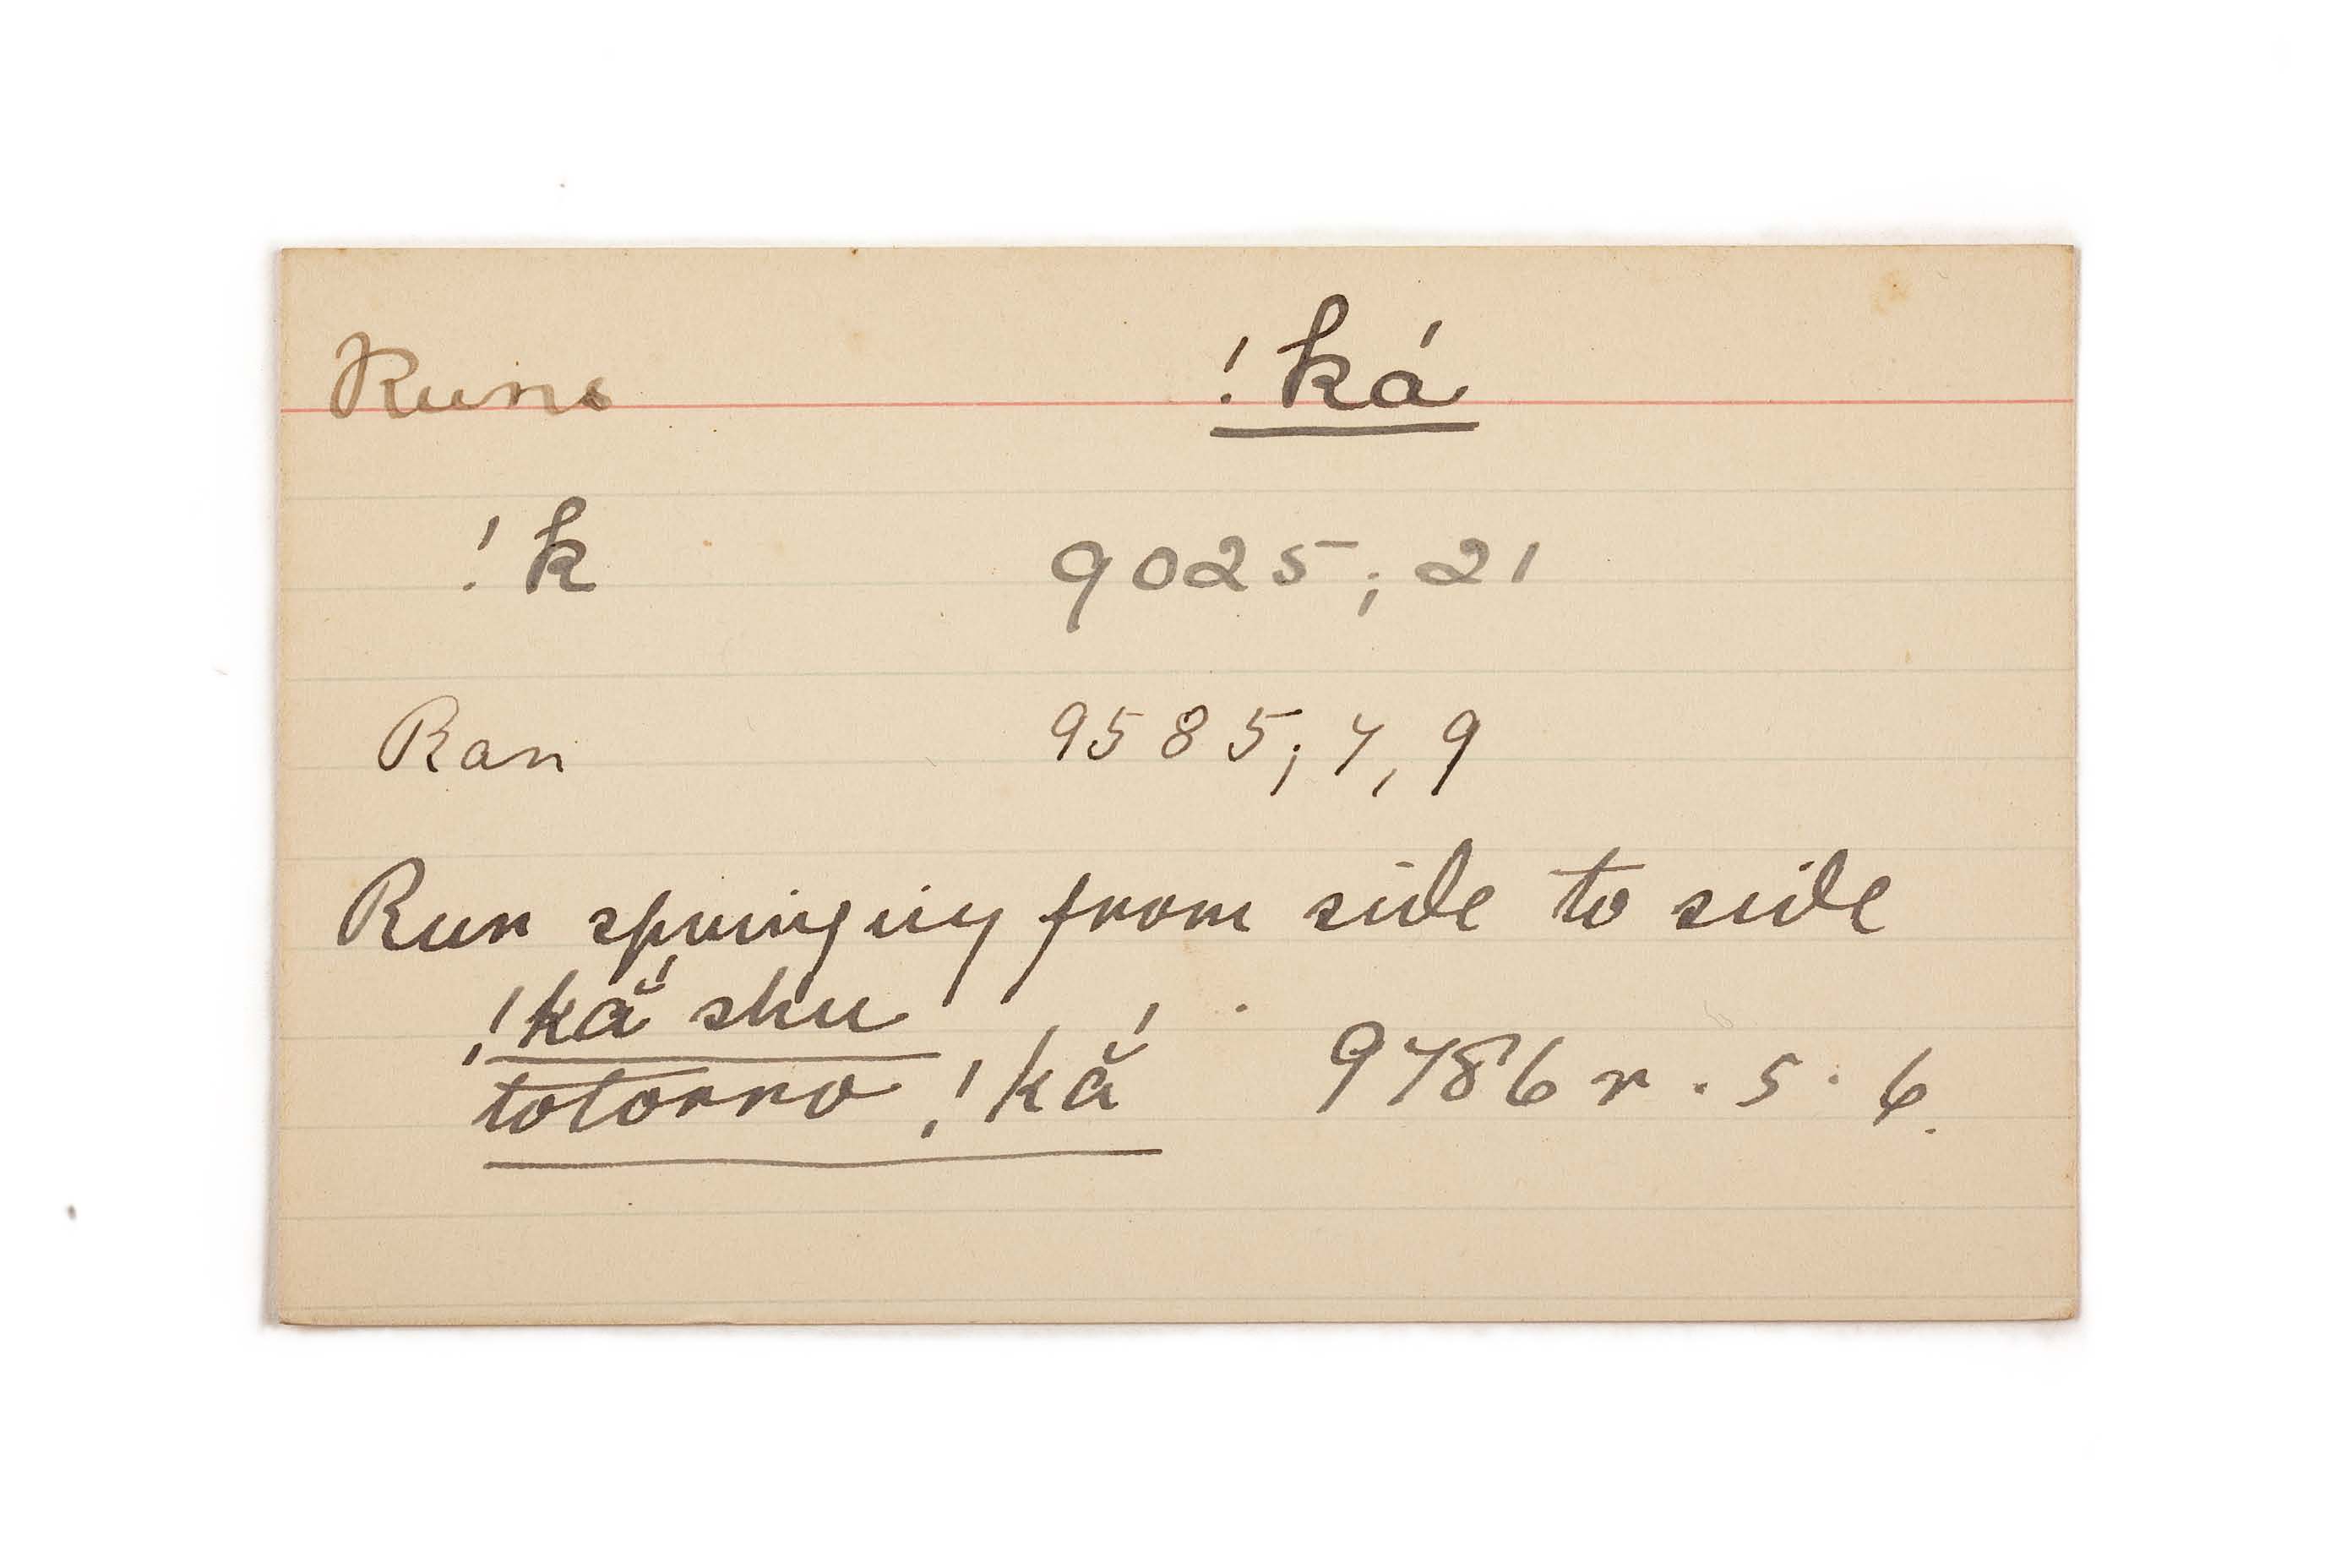 Runs !ká
!k 9025; 21
Ran 9585; 7, 9
Run springing from side to side
!kắ shu
totorro !kắ 9786 r. 5. 6.